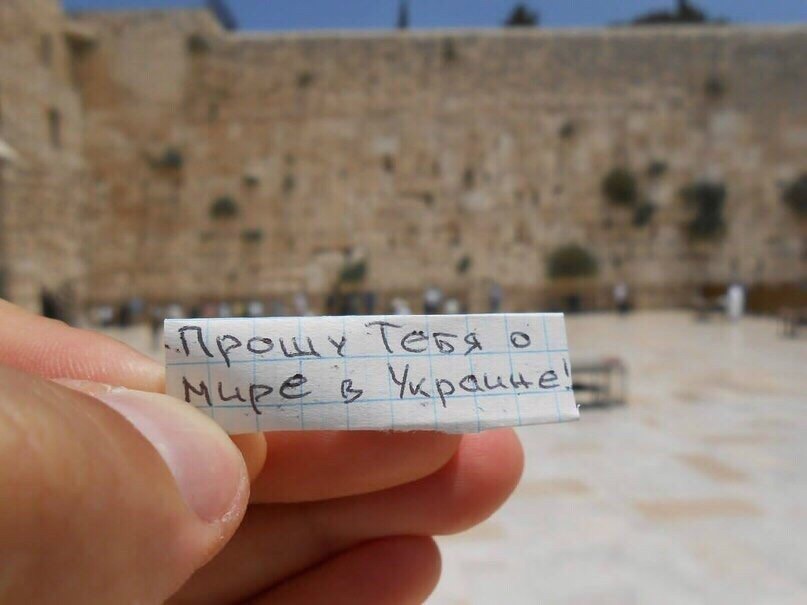 Прошу Тебя о
мире в Украине!